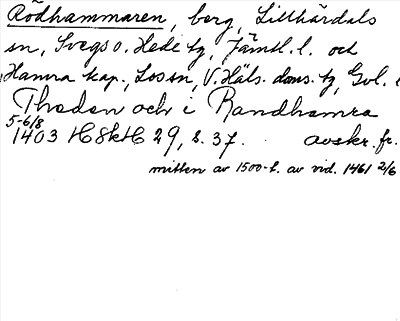 Rödhammaren, berg, Lillhärdals
sn, Svegs o. Hede tg, Jämtl. l. och
Hamra kap., Los sn, V. Häls. doms. tg, Gvl. l
Theden och i Randhamra
5-6/8
1403 H8kH 29, s. 37. avskr. fr.
mitten av 1500-t. av vid. 1461 2/6